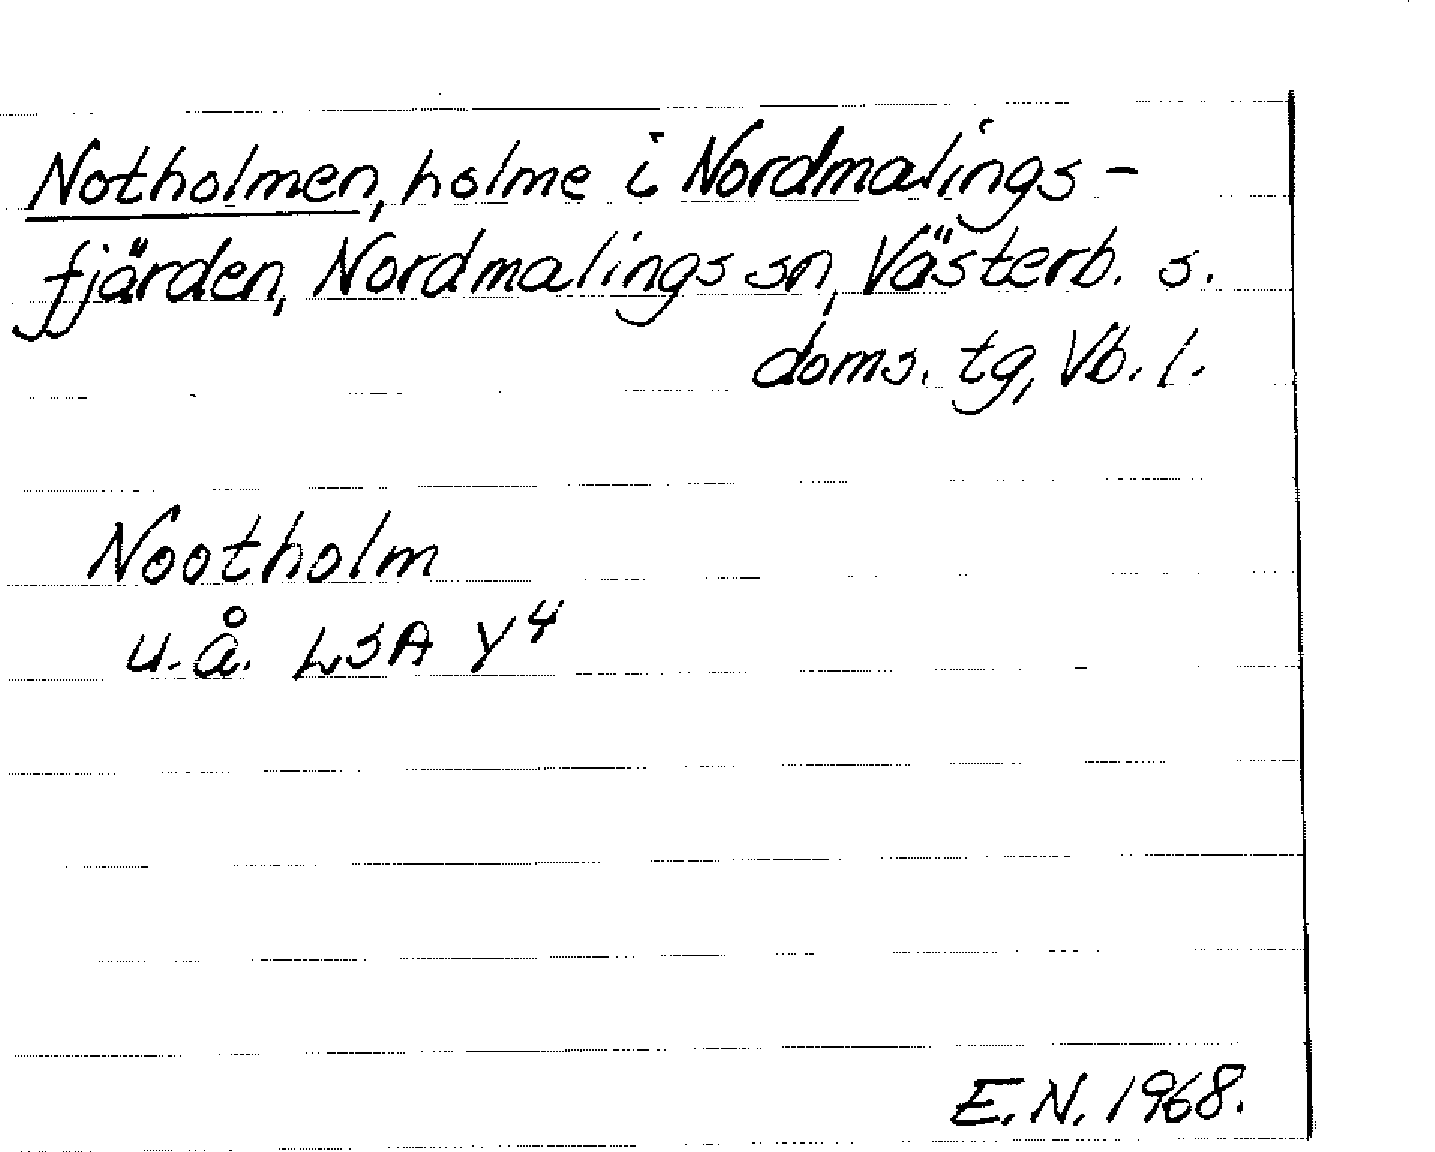 Notholmen, holme i Nordmalings-
fjärden, Nordmalings sn, Västerb. s.
doms. tg, Vb. l.
Nootholm
u.å. LSA Y4
E.N. 1968.